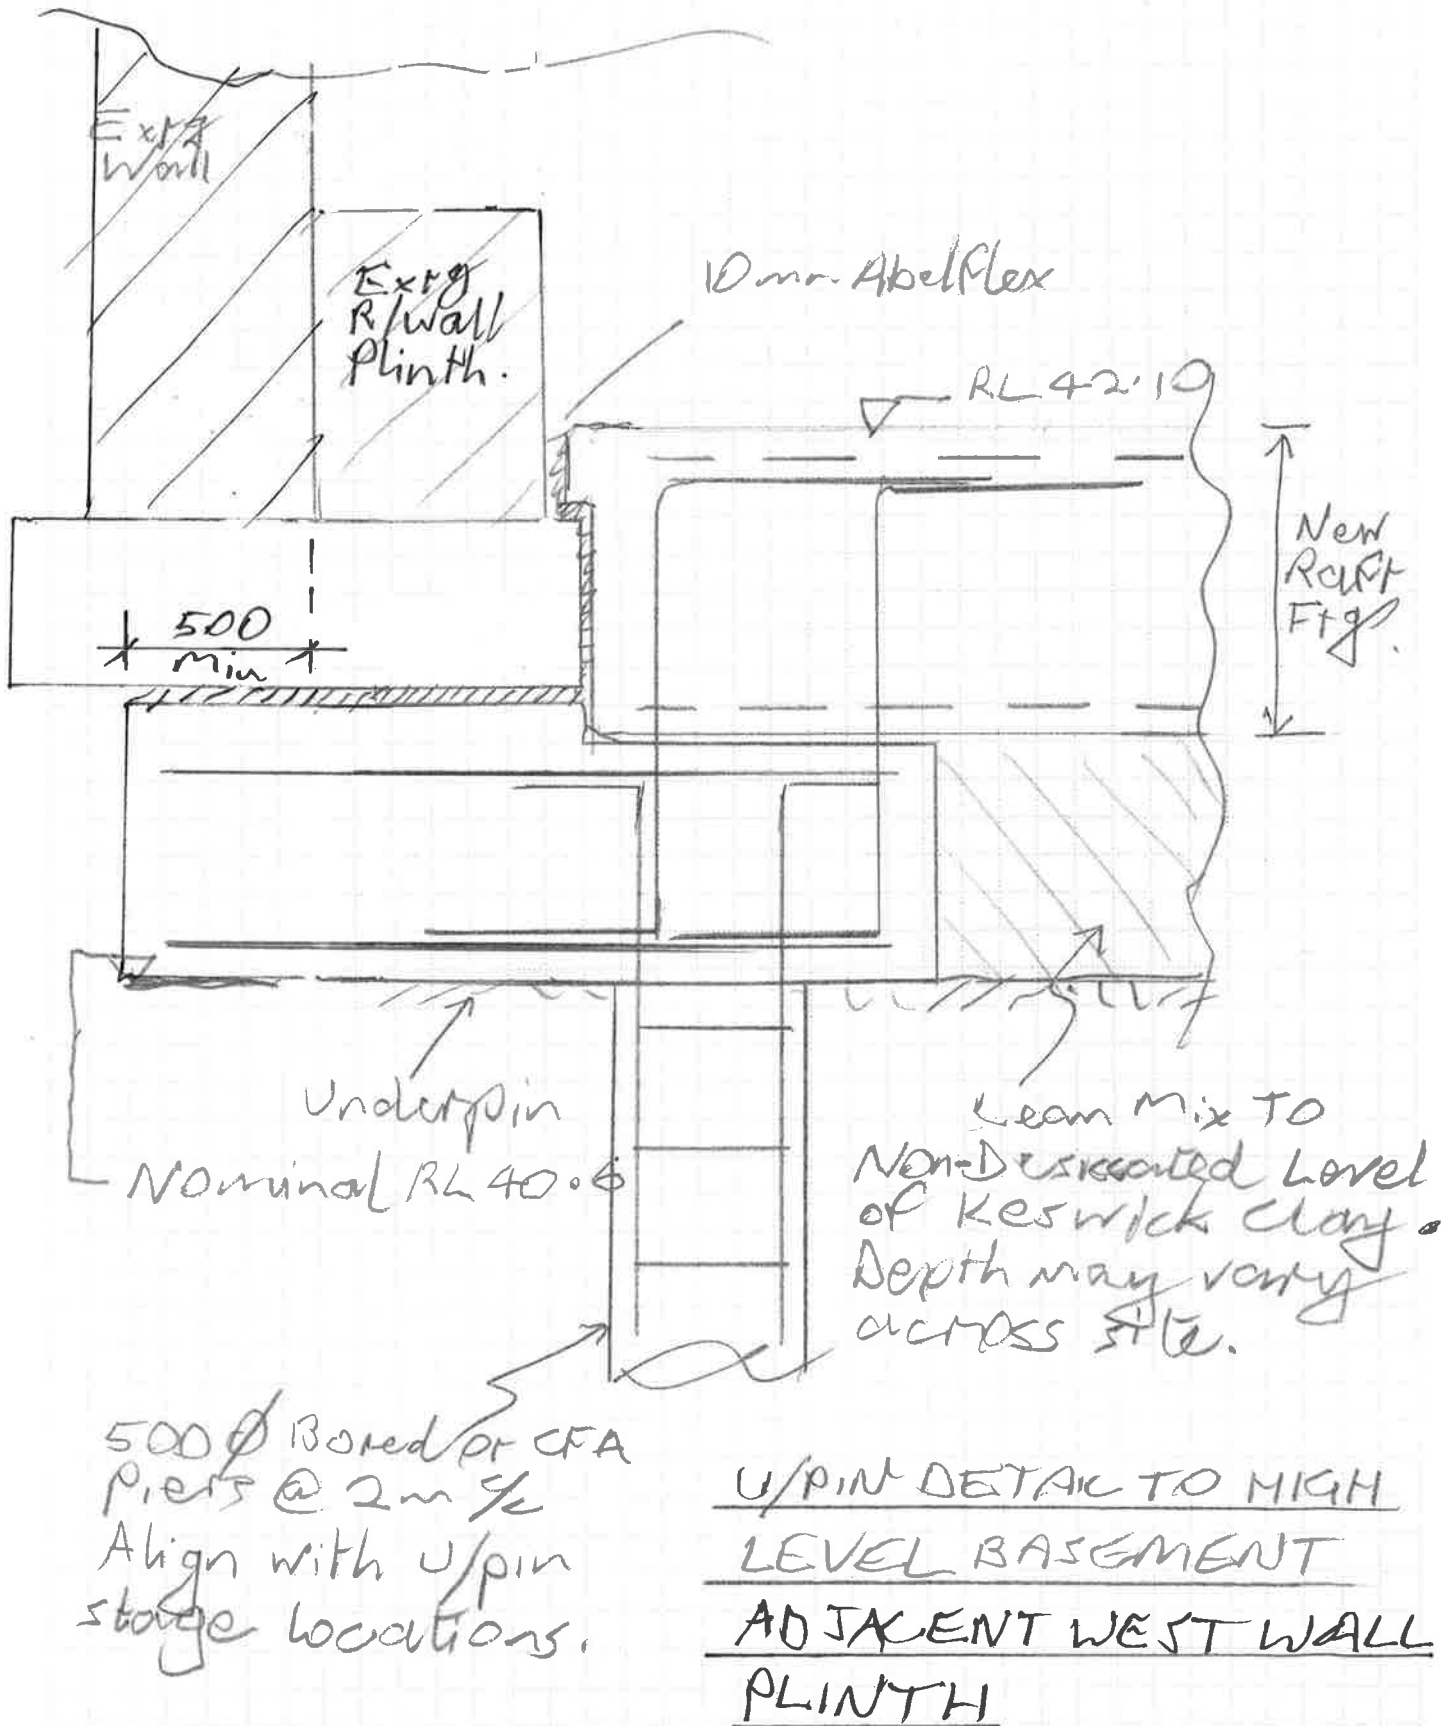 Extg
Wall
Extg
R/Wall
Plinth.
10mm Abelflex
RL 42.10
New
Raft
Ftg.
500
Min
Underpin
Nominal RL 40.6
Lean Mix To
Non-Desiccated Level
of Keswick Clay.
Depth may vary
across site.
500 Ø Bored or CFA
Piers @ 2m c/c
Align with u/pin
stage locations.
U/PIN DETAIL TO HIGH
LEVEL BASEMENT
ADJACENT WEST WALL
PLINTH